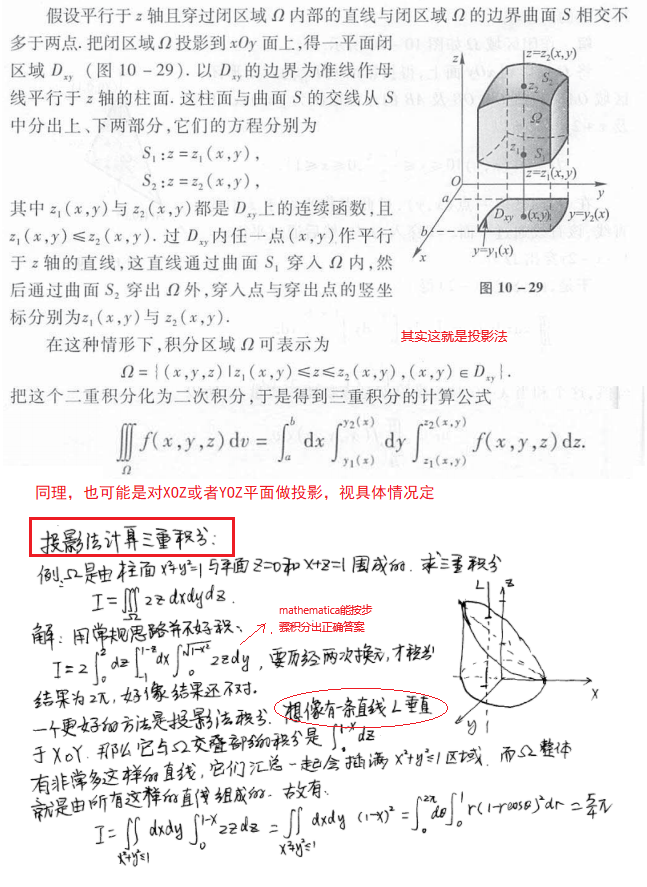 假设平行于 z 轴且穿过闭区域 Ω 内部的直线与闭区域 Ω 的边界曲面 S 相交不
多于两点.把闭区域 Ω 投影到 xOy 面上,得一平面闭
区域 D_xy (图 10-29).以 D_xy 的边界为准线作母
线平行于 z 轴的柱面.这柱面与曲面 S 的交线从 S
中分出上、下两部分,它们的方程分别为
S₁:z=z₁(x,y),
S₂:z=z₂(x,y),
其中 z₁(x,y)与 z₂(x,y)都是 D_xy 上的连续函数,且
z₁(x,y)≤z₂(x,y).过 D_xy 内任一点(x,y)作平行
于 z 轴的直线,这直线通过曲面 S₁ 穿入 Ω 内,然
后通过曲面 S₂ 穿出 Ω 外,穿入点与穿出点的竖坐
标分别为z₁(x,y)与 z₂(x,y).
z
z=z₂(x,y)
S₂
z₂
Ω
z₁
S₁
z=z₁(x,y)
O
a
y
b
D_xy
(x,y)
y=y₂(x)
x
y=y₁(x)
图 10-29
其实这就是投影法
在这种情形下,积分区域 Ω 可表示为
Ω={(x,y,z)|z₁(x,y)≤z≤z₂(x,y),(x,y)∈D_xy}.
把这个二重积分化为二次积分,于是得到三重积分的计算公式
∭_Ω f(x,y,z)dv=∫_a^b dx∫_{y₁(x)}^{y₂(x)} dy∫_{z₁(x,y)}^{z₂(x,y)} f(x,y,z)dz.
同理，也可能是对XOZ或者YOZ平面做投影，视具体情况定
投影法计算三重积分:
例:Ω是由柱面x²+y²=1与平面z=0和x+z=1围成的.求三重积分
I=∭_Ω 2z dxdydz.
mathematica能按步
骤积分出正确答案
解:用常规思路并不好积:
I=2∫_0^2 dz∫_1^{1-z} dx∫_0^{√(1-x²)} 2z dy,要历经两次换元,才积出
结果为2π,好像结果还不对.
一个更好的方法是投影法积分.想像有一条直线L垂直
于XoY.那么它与Ω交叠部分的积分是∫_0^{1-x} dz
有非常多这样的直线,它们汇总一起会插满x²+y²≤1区域.而Ω整体
就是由所有这样的直线组成的.故有:
I=∬_{x²+y²≤1} dxdy∫_0^{1-x} 2z dz=∬_{x²+y²≤1} dxdy (1-x)²=∫_0^{2π} dθ∫_0^1 r(1-rcosθ)²dr=5/4 π
L
z
x
y